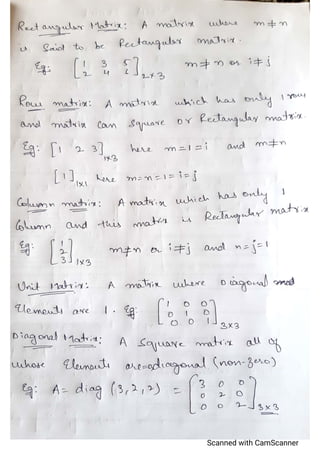 Rectangular Matrix: A matrix where m ≠ n
is said to be Rectangular matrix.
Eg: [1 3 5
2 4 6]2×3 m ≠ n or i ≠ j
Row matrix: A matrix which has only 1 row
and matrix can square or Rectangular matrix.
Eg: [1 2 3]1×3 here m = 1 = i and m ≠ n
[1]1×1 here m = n = 1 = i = j
Column matrix: A matrix which has only 1
Column and this matrix is Rectangular matrix
Eg: [1
2
3]1×3 m ≠ n or i ≠ j and n = j = 1
Unit Matrix: A matrix where Diagonal
Elements are 1. Eg: [1 0 0
0 1 0
0 0 1]3×3
Diagonal Matrix: A square matrix all of
whose Elements are diagonal (non-zero)
Eg: A = diag (3, 2, 2) = [3 0 0
0 2 0
0 0 2]3×3
Scanned with CamScanner